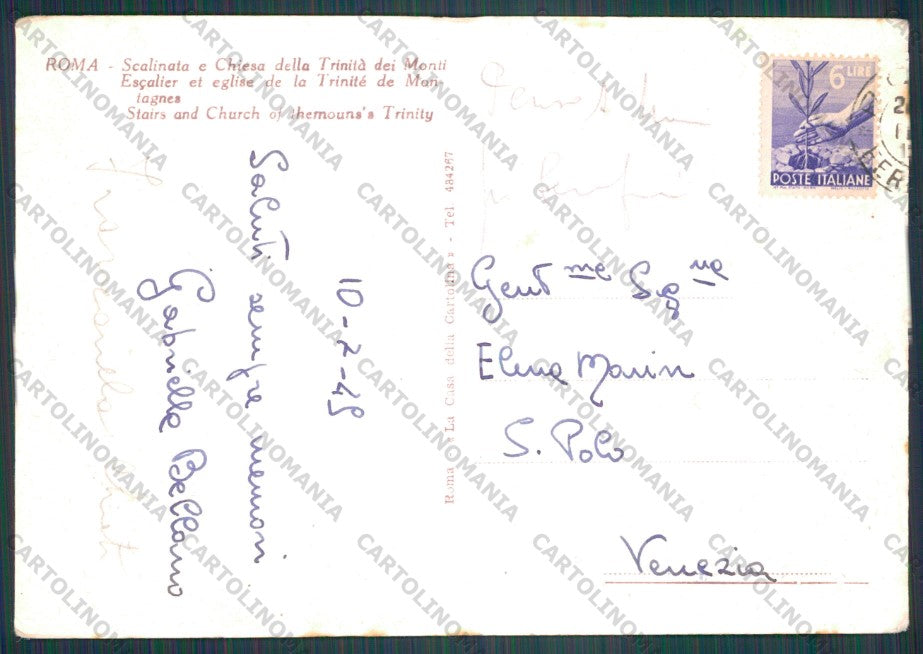 ROMA - Scalinata e Chiesa della Trinità dei Monti
Esçalier et eglise de la Trinité de Mon-
tagnes
Stairs and Church of themouns's Trinity
6 LIRE
POSTE ITALIANE
10-2-49
Saluti sempre memori
Gabriella Bellamo
Roma - "La Casa della Cartolina" - Tel 484267
Gent me Sig na
Elena Marin
S. Polo
Venezia
CARTOLINOMANIA